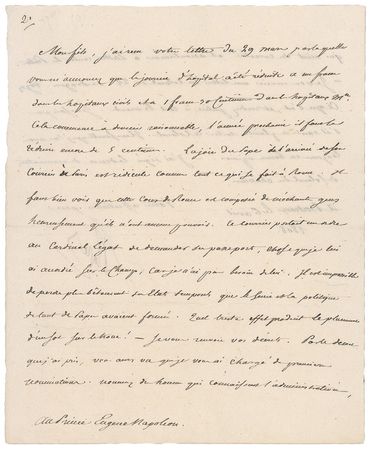 2.
Mon fils, j'ai reçu votre lettre du 29 mars par laquelle
vous m'annoncez que la journée d'hôpital a été réduite à un franc
dans les hôpitaux civils et à 1 franc 30 Centimes dans les hôpitaux
Cela commence à devenir raisonnable, l'année prochaine il faut la
réduire encore de 5 centimes. La joie du Pape de l'arrivée de son
Courrier de Paris est ridicule comme tout ce qui se fait à Rome, et
fait bien voir que cette Cour de Rome est composée de méchants gens
heureusement qu'ils n'ont aucun pouvoir. Ce courrier portait un ordre
au Cardinal légat de demander son passeport, chose que je lui
ai accordé sur le Champ, car je n'ai pas besoin de lui. Il est impossible
de perdre plus bêtement des Etats temporels que le Génie et la politique
de tant de Papes avaient formé. Quel triste effet produit le placement
d'un sot sur le trône! — Je vous renvoie vos décrets. Par le décret
que j'ai pris, vous avez vu que je vous ai changé de premières
nominations. nommez des hommes qui connaissent l'administration,
Au Prince Eugene Napoléon.